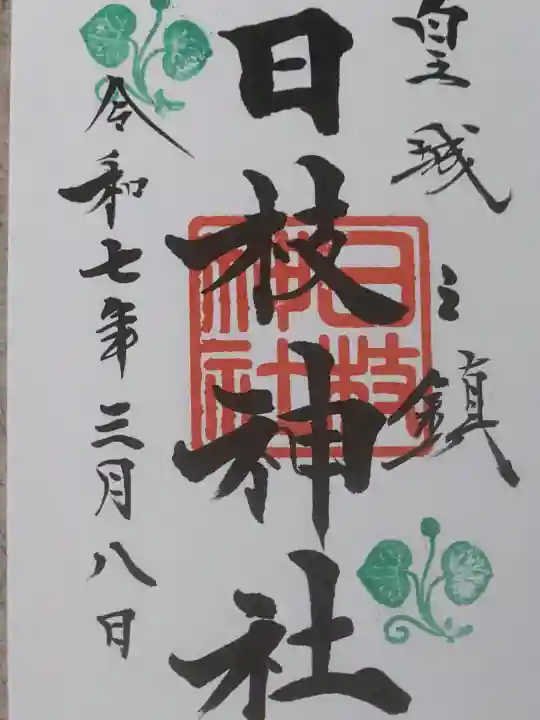 皇城之鎮
日枝神社
日枝神社
令和七年三月八日